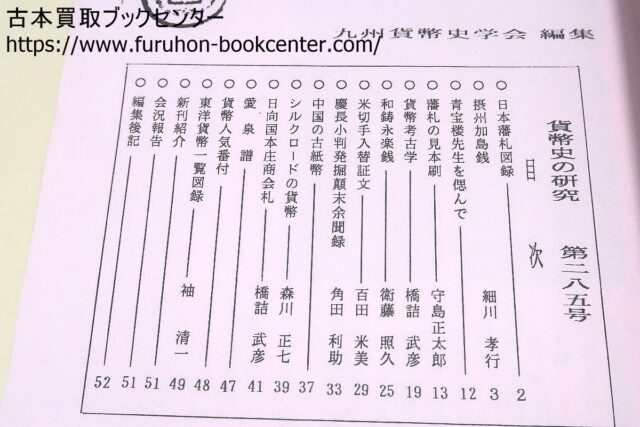 古本買取ブックセンター
https://www.furuhon-bookcenter.com/
九州貨幣史学会 編集
貨幣史の研究 第二八五号
目次
○ 日本藩札図録 2
○ 摂州加島銭 細川 孝行 3
○ 青宝楼先生を偲んで 12
○ 藩札の見本刷 守島正太郎 13
○ 貨幣考古学 橋詰 武彦 19
○ 和鋳永楽銭 衛藤 照久 25
○ 米切手入替証文 百田 米美 29
○ 慶長小判発掘顛末余聞録 角田 利助 33
○ 中国の古紙幣 37
○ シルクロードの貨幣 森川 正七 39
○ 日向国本庄商会札 橋詰 武彦 41
○ 愛泉譜 47
○ 貨幣人気番付 48
○ 東洋貨幣一覧図録 49
○ 新刊紹介 袖 清一 51
○ 会況報告 51
○ 編集後記 52